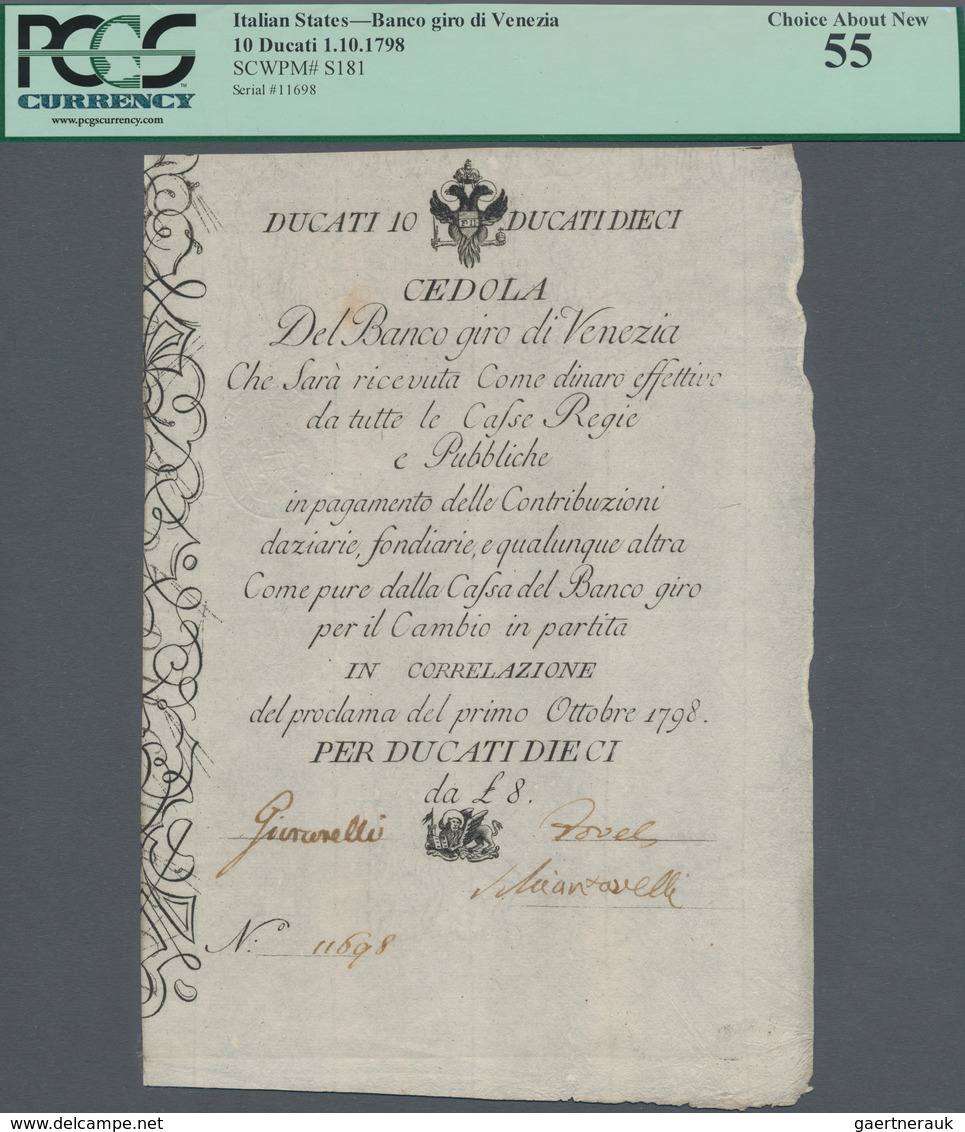 PCGS
CURRENCY
www.pcgscurrency.com
Italian States—Banco giro di Venezia
10 Ducati 1.10.1798
SCWPM# S181
Serial #11698
Choice About New
55
DUCATI 10 DUCATI DIECI
CEDOLA
Del Banco giro di Venezia
Che Sarà ricevuta Come dinaro effettivo
da tutte le Caſse Regie
e Pubbliche
in pagamento delle Contribuzioni
daziarie, fondiarie, e qualunque altra
Come pure dalla Caſsa del Banco giro
per il Cambio in partita
IN CORRELAZIONE
del proclama del primo Ottobre 1798.
PER DUCATI DIECI
da £ 8.
N.o 11698
gaertnerauk